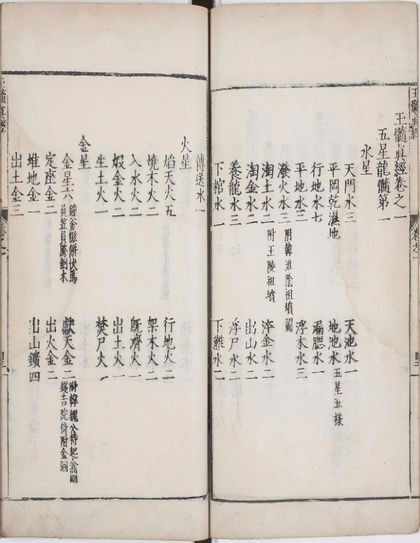 玉髓真經卷之一
五星龍髓第一
水星
天門水三
天池水一
平岡乾濕地
地池水五星五樣
行地水七
漏腮水一
平地水三
浮木水三
潑火水三附韓淮陰祖墳圖
淘土水二附王陵祖墳
淬金水二
淘金水二
出山水一
養龍水三
浮尸水二
下棺水一
下糞水二
傳送水一
火星
焰天火五
行地火二
燒木火二
架木火二
入水火一
既濟火一
煅金火二
出土火一
生土火一
焚尸火一
金星
金星六
獻天金二
定座金二
出火金二
堆地金一
出山鑛四
出土金三